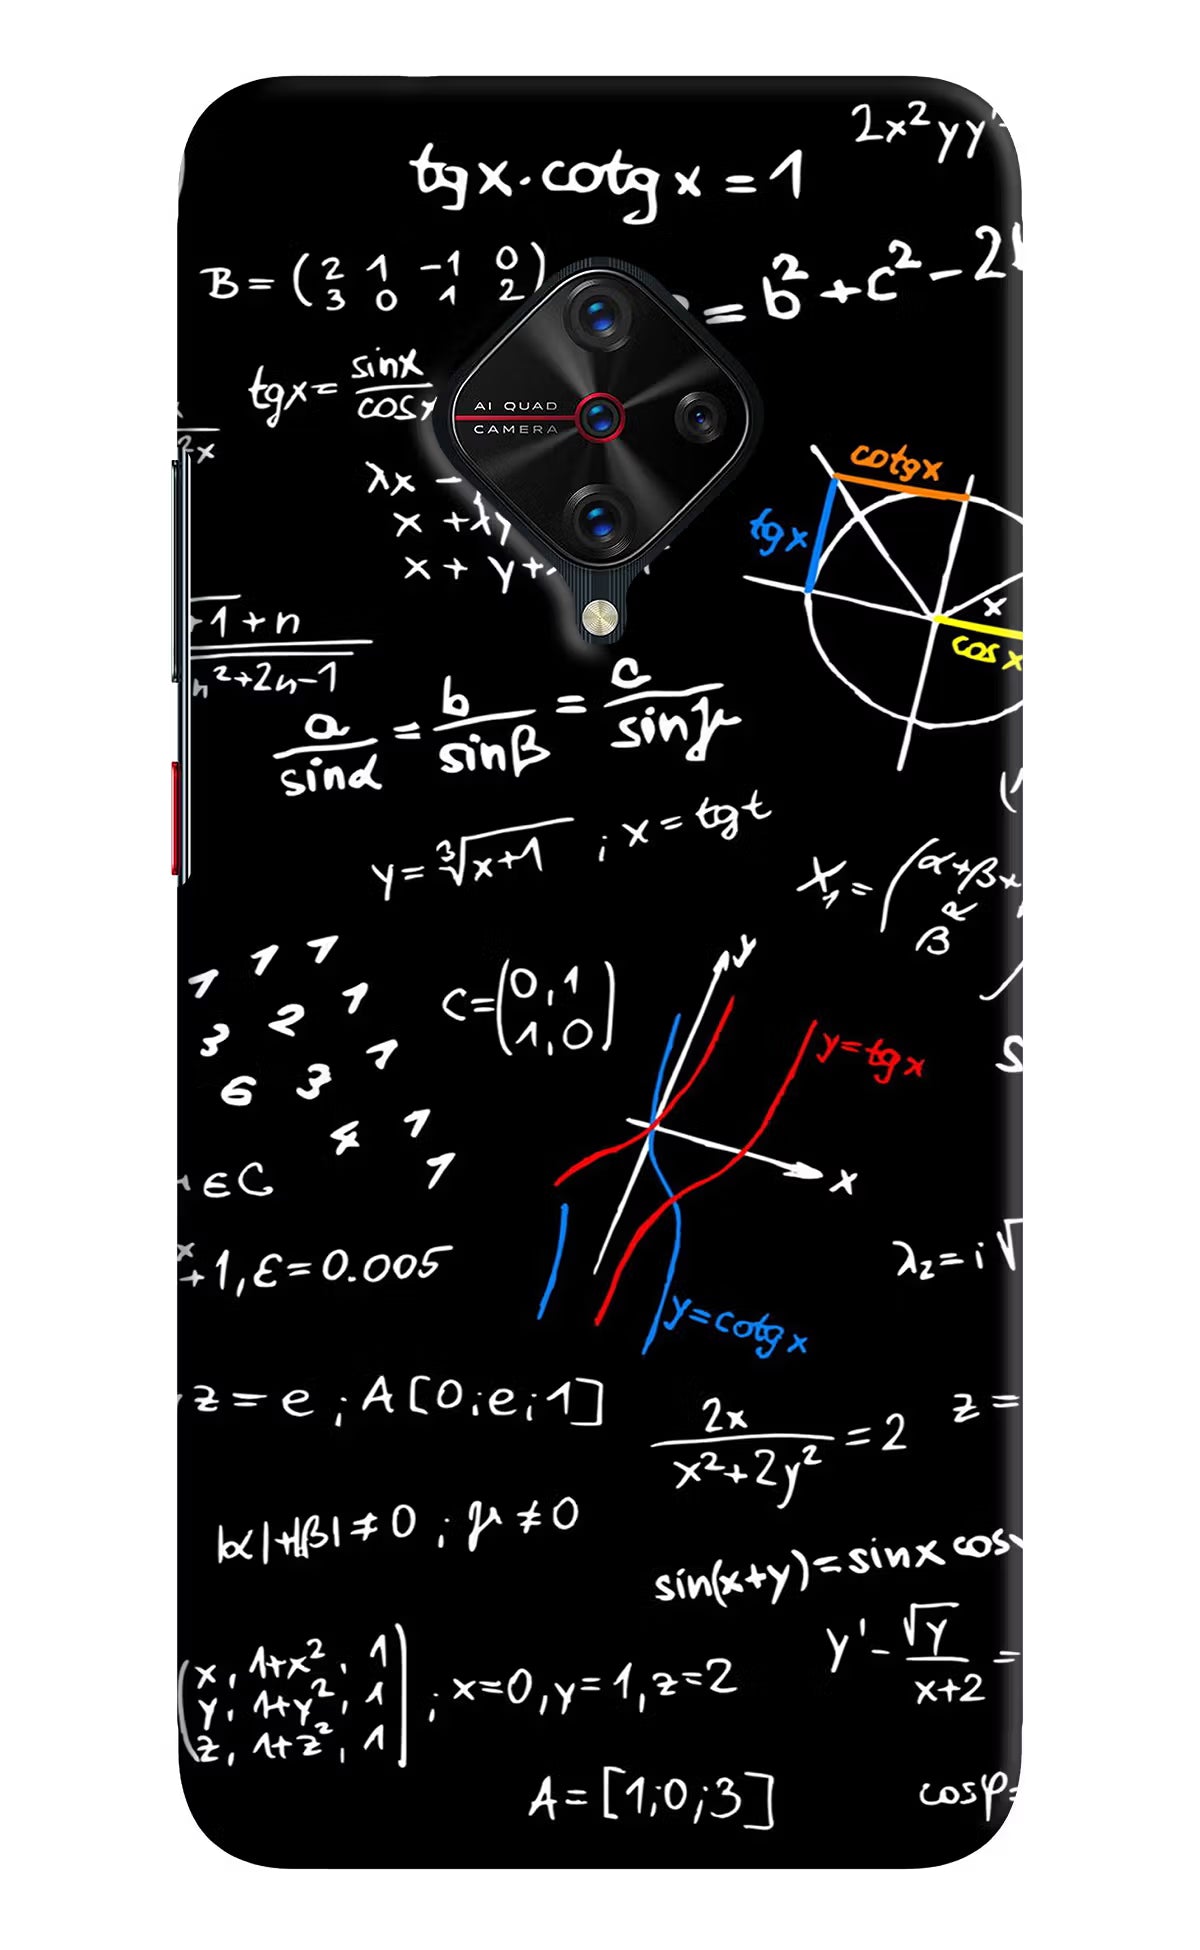 2x²yy'
tgx·cotgx=1
B=(2 1 -1 0
3 0 1 2)
=b²+c²-2
tgx= sinx
cosx
AI QUAD
CAMERA
2x
λx -
x +λy
x + y+
cotgx
tgx
x
cosx
+1+n
n²+2n-1
a/sinα = b/sinβ = c/sinμ
y=³√x+1 ; x=tgt
X₁=(α+β+
β R
1 1 1
3 2 1
6 3 1
4 1
1
C=(0,1
1,0)
y
y=tgx
x
y=cotgx
∈C
+1,ε=0.005
λ₂=i√
z=e ; A[0;e;1]
2x/x²+2y²=2
z=
|α|+|β|≠0 ; μ≠0
sin(x+y)=sinx cos
y'-√y/x+2=
(x, 1+x², 1
y, 1+y², 1
z, 1+z², 1) ; x=0,y=1,z=2
A=[1;0;3]
cosφ=